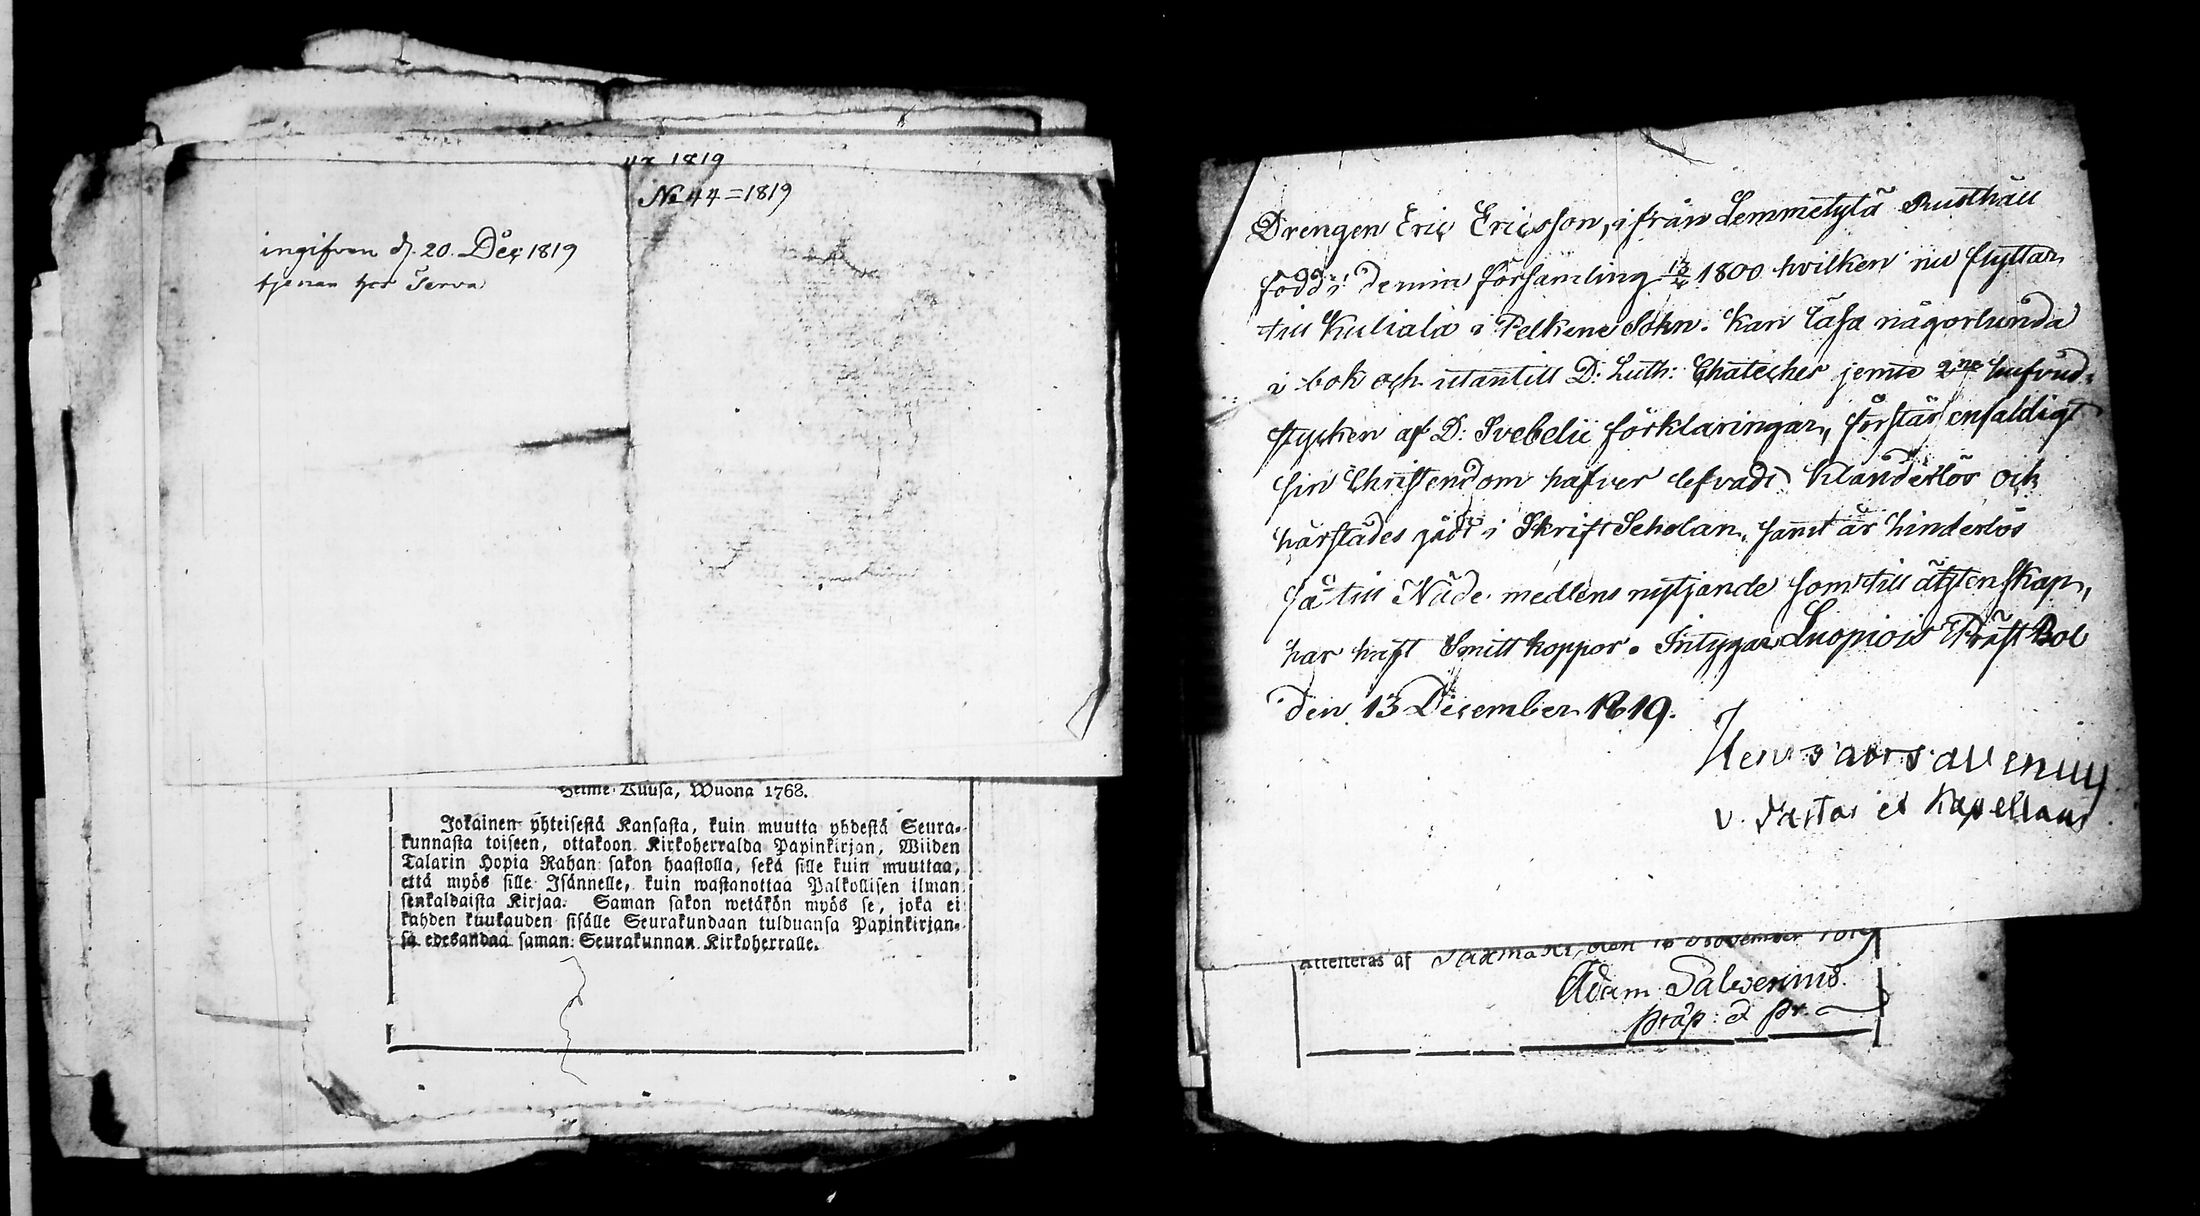 1819
No 44=1819
ingifven d. 20. Dec 1819
tjenar hos Serva
Helme-Kuusa, Wuona 1768.
Jokainen yhteisestä Kansasta, kuin muutta yhdestä Seura-
kunnasta toiseen, ottakoon Kirkoherralda Papinkirjan, Wiiden
Talarin Hopia Rahan sakon haastolla, sekä sille kuin muuttaa,
että myös sille Isännelle, kuin wastanottaa Palkollisen ilman
senkaldaista Kirjaa. Saman sakon wetäkön myös se, joka ei
kahden kuukauden sisälle Seurakundaan tulduansa Papinkirjan-
sa edesandaa saman Seurakunnan Kirkoherralle.
Drengen Eric Ericsson, ifrån Lemmetylä Rusthåll
född i denna församling 13/4 1800 hvilken nu flyttar
till Kuliala i Pelkene Sokn. Kan läsa någorlunda
i bok och utantill D: Luth: Chateches jemte 2ne hufvud-
stycken af D: Svebelii förklaringar, förstår enfaldigt
sin Christendom hafver lefvadt klanderlös och
härstädes gådt i Skrift Scholan, samt är hinderlös
så till Nåde medlens nyttjande som till äktenskap,
har haft Smittkoppor. Intygar Luopiois Präst Bol
den 13 December 1819.
v. Pastor et Kapellan
Attesteras af Saxmäki, den 18 November 1819
Adam Salvenius.
präp: et Pr.